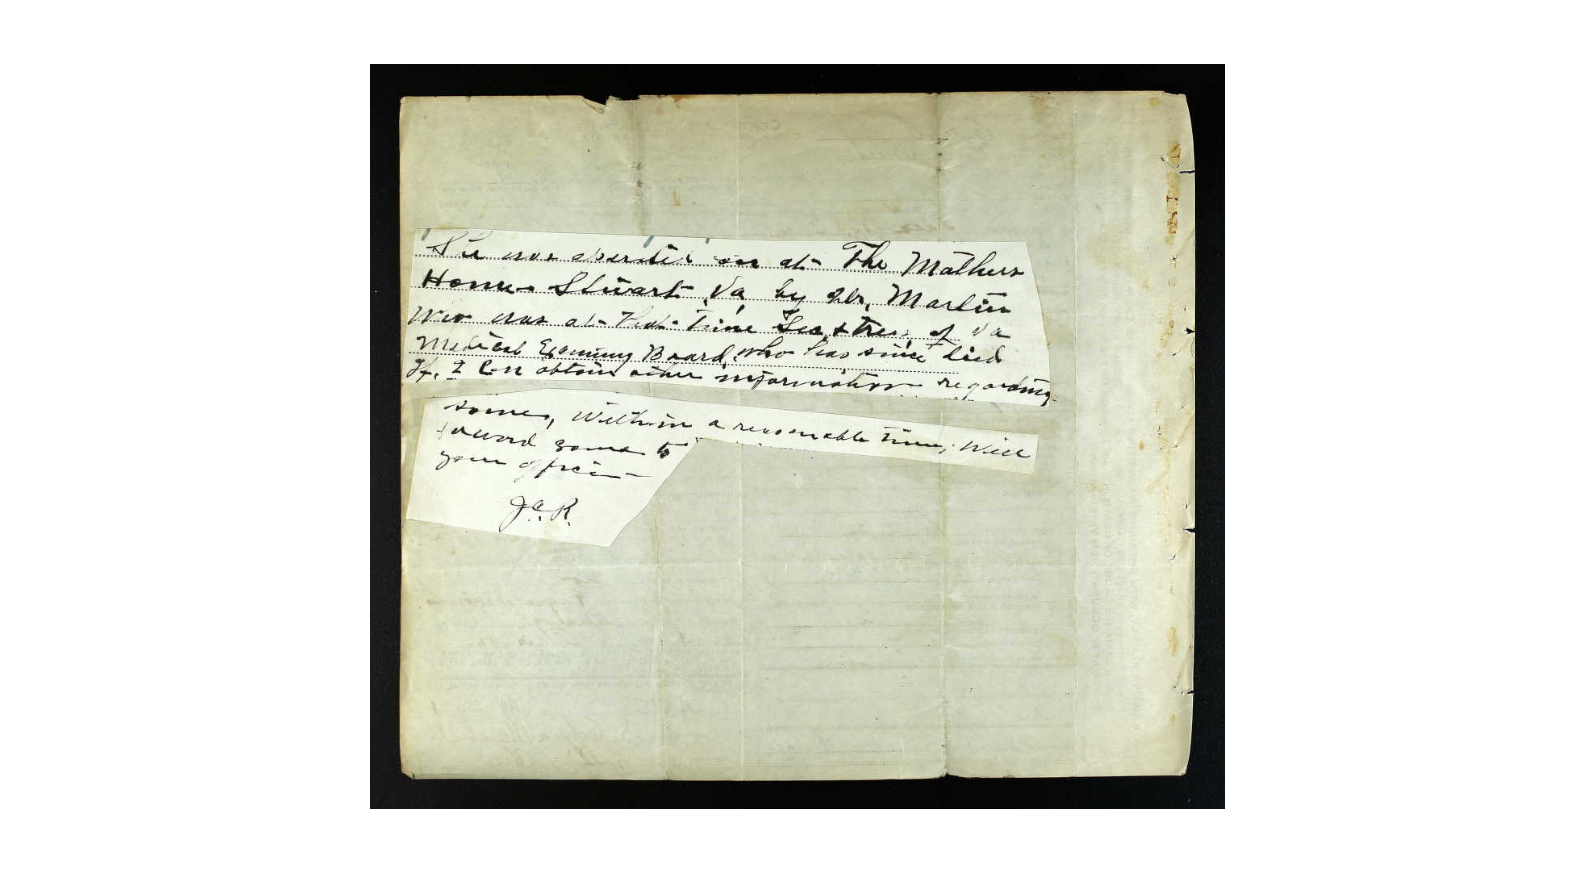 She was operated on at The Mathers
Home Stuart, Va, by Dr, Martin
Who was at that time Secstrey of Va
Medical Examing Board, who has since died
If, I Can obtain other information regarding
same, Within a reasonable time, Will
forword same to
your office
J.a.R.